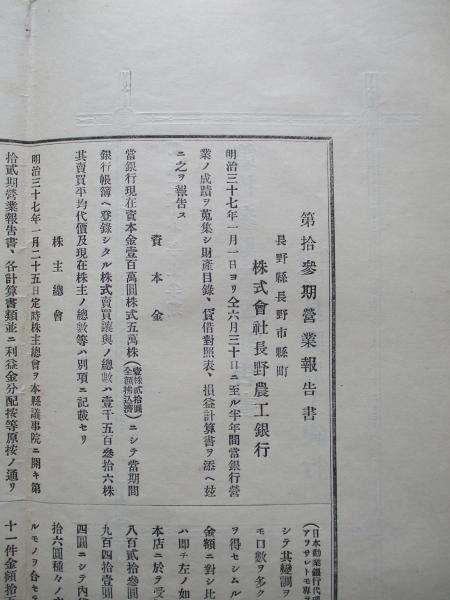 第拾參期營業報告書
長野縣長野市縣町
株式會社長野農工銀行
明治三十七年一月一日ヨリ仝六月三十日ニ至ル半年間當銀行營
業ノ成蹟ヲ蒐集シ財産目錄、貸借對照表、損益計算書ヲ添ヘ玆
ニ之ヲ報告ス
資本金
當銀行現在資本金壹百萬圓株式五萬株(壹株貳拾圓全額拂込濟)ニシテ當期間
銀行帳簿ヘ登錄シタル株式賣買讓與ノ總數ハ壹千五百參拾六株
其賣買平均代價及現在株主ノ總數等ハ別項ニ記載セリ
株主總會
明治三十七年一月二十五日定時株主總會ヲ本縣議事院ニ開キ第
拾貳期營業報告書、各計算書類並ニ利益金分配按等原按ノ通リ
(日本勸業銀行代理
アヲサレトモ專ラ
シテ其變調ヲ
モ口數ヲ多ク
ヲ得セシムル
金額ニ對シ比
ハ即チ左ノ如
本店ニ於テ受
八百貳拾參圓
九百四拾壹圓
四圓ニシテ內
拾六圓種々ノ
ルモノヲ合セテ
十一件金額拾